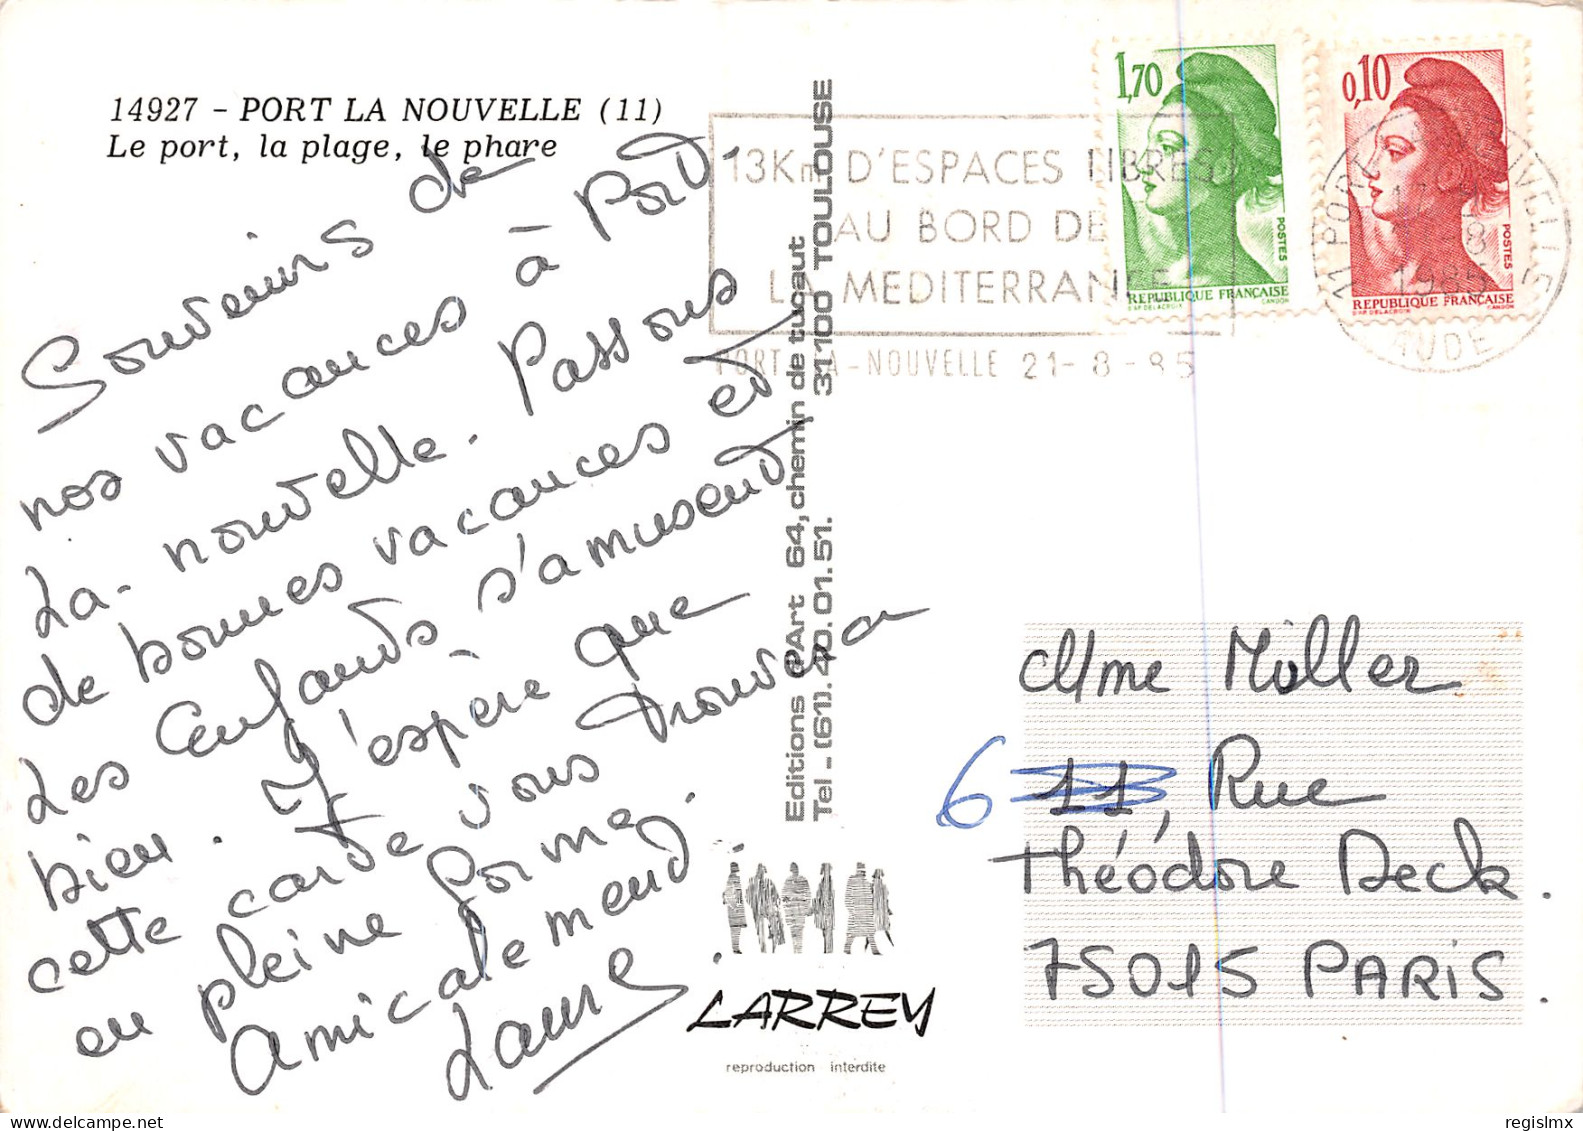 14927 - PORT LA NOUVELLE (11)
Le port, la plage, le phare
Souvenirs de
nos vacances à Port.
La. nouvelle. Passons
de bonnes vacances et
Les Enfants s'amusent
bien. J'espère que
cette carte vous trouvera
en pleine forme.
Amicalement.
Laure
Editions d'Art 64, chemin de tucaut
Tel-(61). 40.01.51. 31100 TOULOUSE
LARREY
reproduction interdite
13Km D'ESPACES LIBRES
AU BORD DE
LA MEDITERRANEE
PORT-LA-NOUVELLE 21-8-85
1,70
POSTES
REPUBLIQUE FRANÇAISE
D'AP. DELACROIX GANDON
0,10
POSTES
REPUBLIQUE FRANÇAISE
D'AP. DELACROIX GANDON
11 PORT LA NOUVELLE
1985
AUDE
Mme Müller
6 11, Rue
Théodore Deck.
75015 PARIS.
regislmx